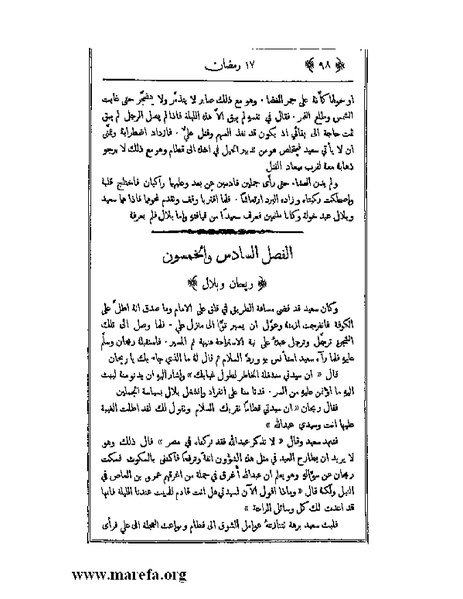 ﴿ ٩٨ ﴾ ١٧ رمضان
او خولة كأنه على جمر الغضا . وهو مع ذلك صابر لا يتذمر ولا يتضجر حتى غابت
الشمس وطلع القمر . فقال في نفسه لم يبق الا هذه الليلة فاذا لم يصل الرجل لم يبق
ثمت حاجة الى بقائي اذ يكون قد نفذ السهم وقتل علي . فازداد اضطرابه وتمنى
ان لا يأتي سعيد فيتخلص هو من تدبير الحيل في اخذه الى قطام وهو مع ذلك لا يرجو
ذهابه معه لقرب ميعاد القتل
ولم يدن العشاء حتى رأى جملين قادمين عن بعد وعليهما راكبان فاختلج قلبه
واصطكت ركبتاه وزاده البرد ارتعاشًا . فلما اقتربا وقف وتقدم نحوها فاذا هما سعيد
وبلال عبد خولة وكانا ملثمين فعرف سعيدًا من قيافته واما بلال فلم يعرفه
الفصل السادس والخمسون
﴿ ريحان وبلال ﴾
وكان سعيد قد قضى مسافة الطريق في قلق على الامام وما صدق انه اطل على
الكوفة فانفرجت ازمته وعوّل ان يسير توًّا الى منزل علي . فلما وصل الى تلك
الشجرة ترجّل وترجل عبده على نية الاستراحة هنيهة ثم المسير . فاستقبله ريحان وسلّم
عليه فلما رآه سعيد استأنس به ورد السلام ثم قال له ما الذي جاء بك يا ريحان
قال « ان سيدتي مشتغلة الخاطر لطول غيابك » واشار اليه ان يدنو منه ليبث
اليه ما اؤتمن عليه من السر . فدنا منه على انفراد واشتغل بلال بسياسة الجملين
فقال ريحان « ان سيدتي قطامًا تقرئك السلام وتقول لك لقد اطلت الغيبة
عليها انت وسيدي عبدالله »
فتنهد سعيد وقال « لا تذكر عبدالله فقد تركناه في مصر » قال ذلك وهو
لا يريد ان يطارح العبيد في مثل هذه الشؤون انفة وترفعًا فاكتفى بالسكوت فسكت
ريحان عن سؤاله وهو يعلم ان عبدالله أُغرق في جملة من اغرقهم عمرو بن العاص في
النيل ولكنه قال « وماذا اقول الآن لسيدتي هل انت قادم للمبيت عندنا الليلة فانها
قد اعدت لك كل وسائل الراحة »
فلبث سعيد برهة تتنازعه عوامل الشوق الى قطام وبواعث العجلة الى علي فرأى
www.marefa.org